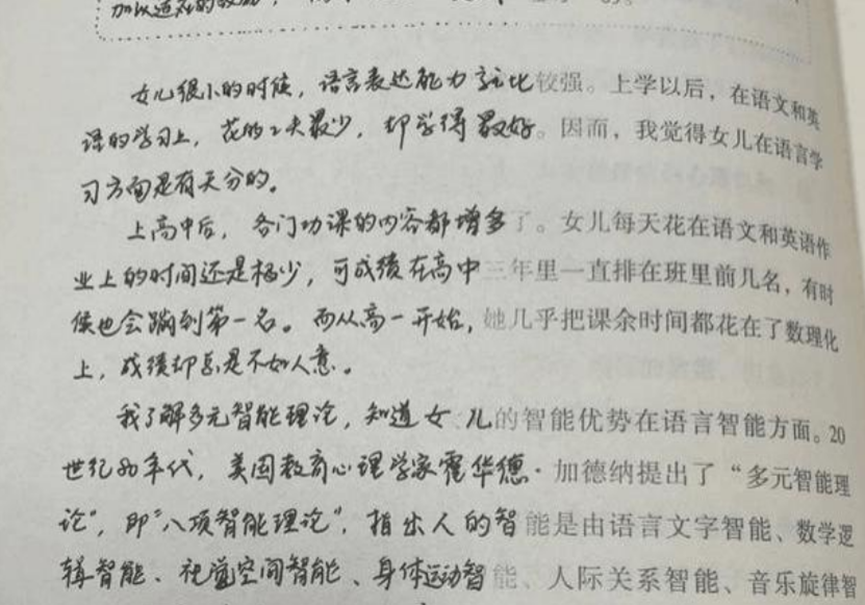 加以适
女儿很小的时候，语言表达能力就比较强。上学以后，在语文和英
语的学习上，花的工夫最少，却学得最好。因而，我觉得女儿在语言学
习方面是有天分的。
上高中后，各门功课的内容都增多了。女儿每天花在语文和英语作
业上的时间还是极少，可成绩在高中三年里一直排在班里前几名，有时
候也会蹦到第一名。而从高一开始，她几乎把课余时间都花在了数理化
上，成绩却总是不如人意。
我了解多元智能理论，知道女儿的智能优势在语言智能方面。20
世纪80年代，美国教育心理学家霍华德·加德纳提出了“多元智能理
论”，即“八项智能理论”，指出人的智能是由语言文字智能、数学逻
辑智能、视觉空间智能、身体运动智能、人际关系智能、音乐旋律智